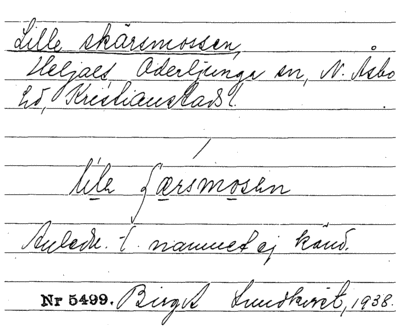 Lille skärsmossen,
Heljaes, Oderljunga sn, N. Åsbo
hd, Kristianstads l.
lilə ʃærsmosən
Anledn. t. namnet ej känd.
Nr 5499. Birgit Lundkvist, 1938.